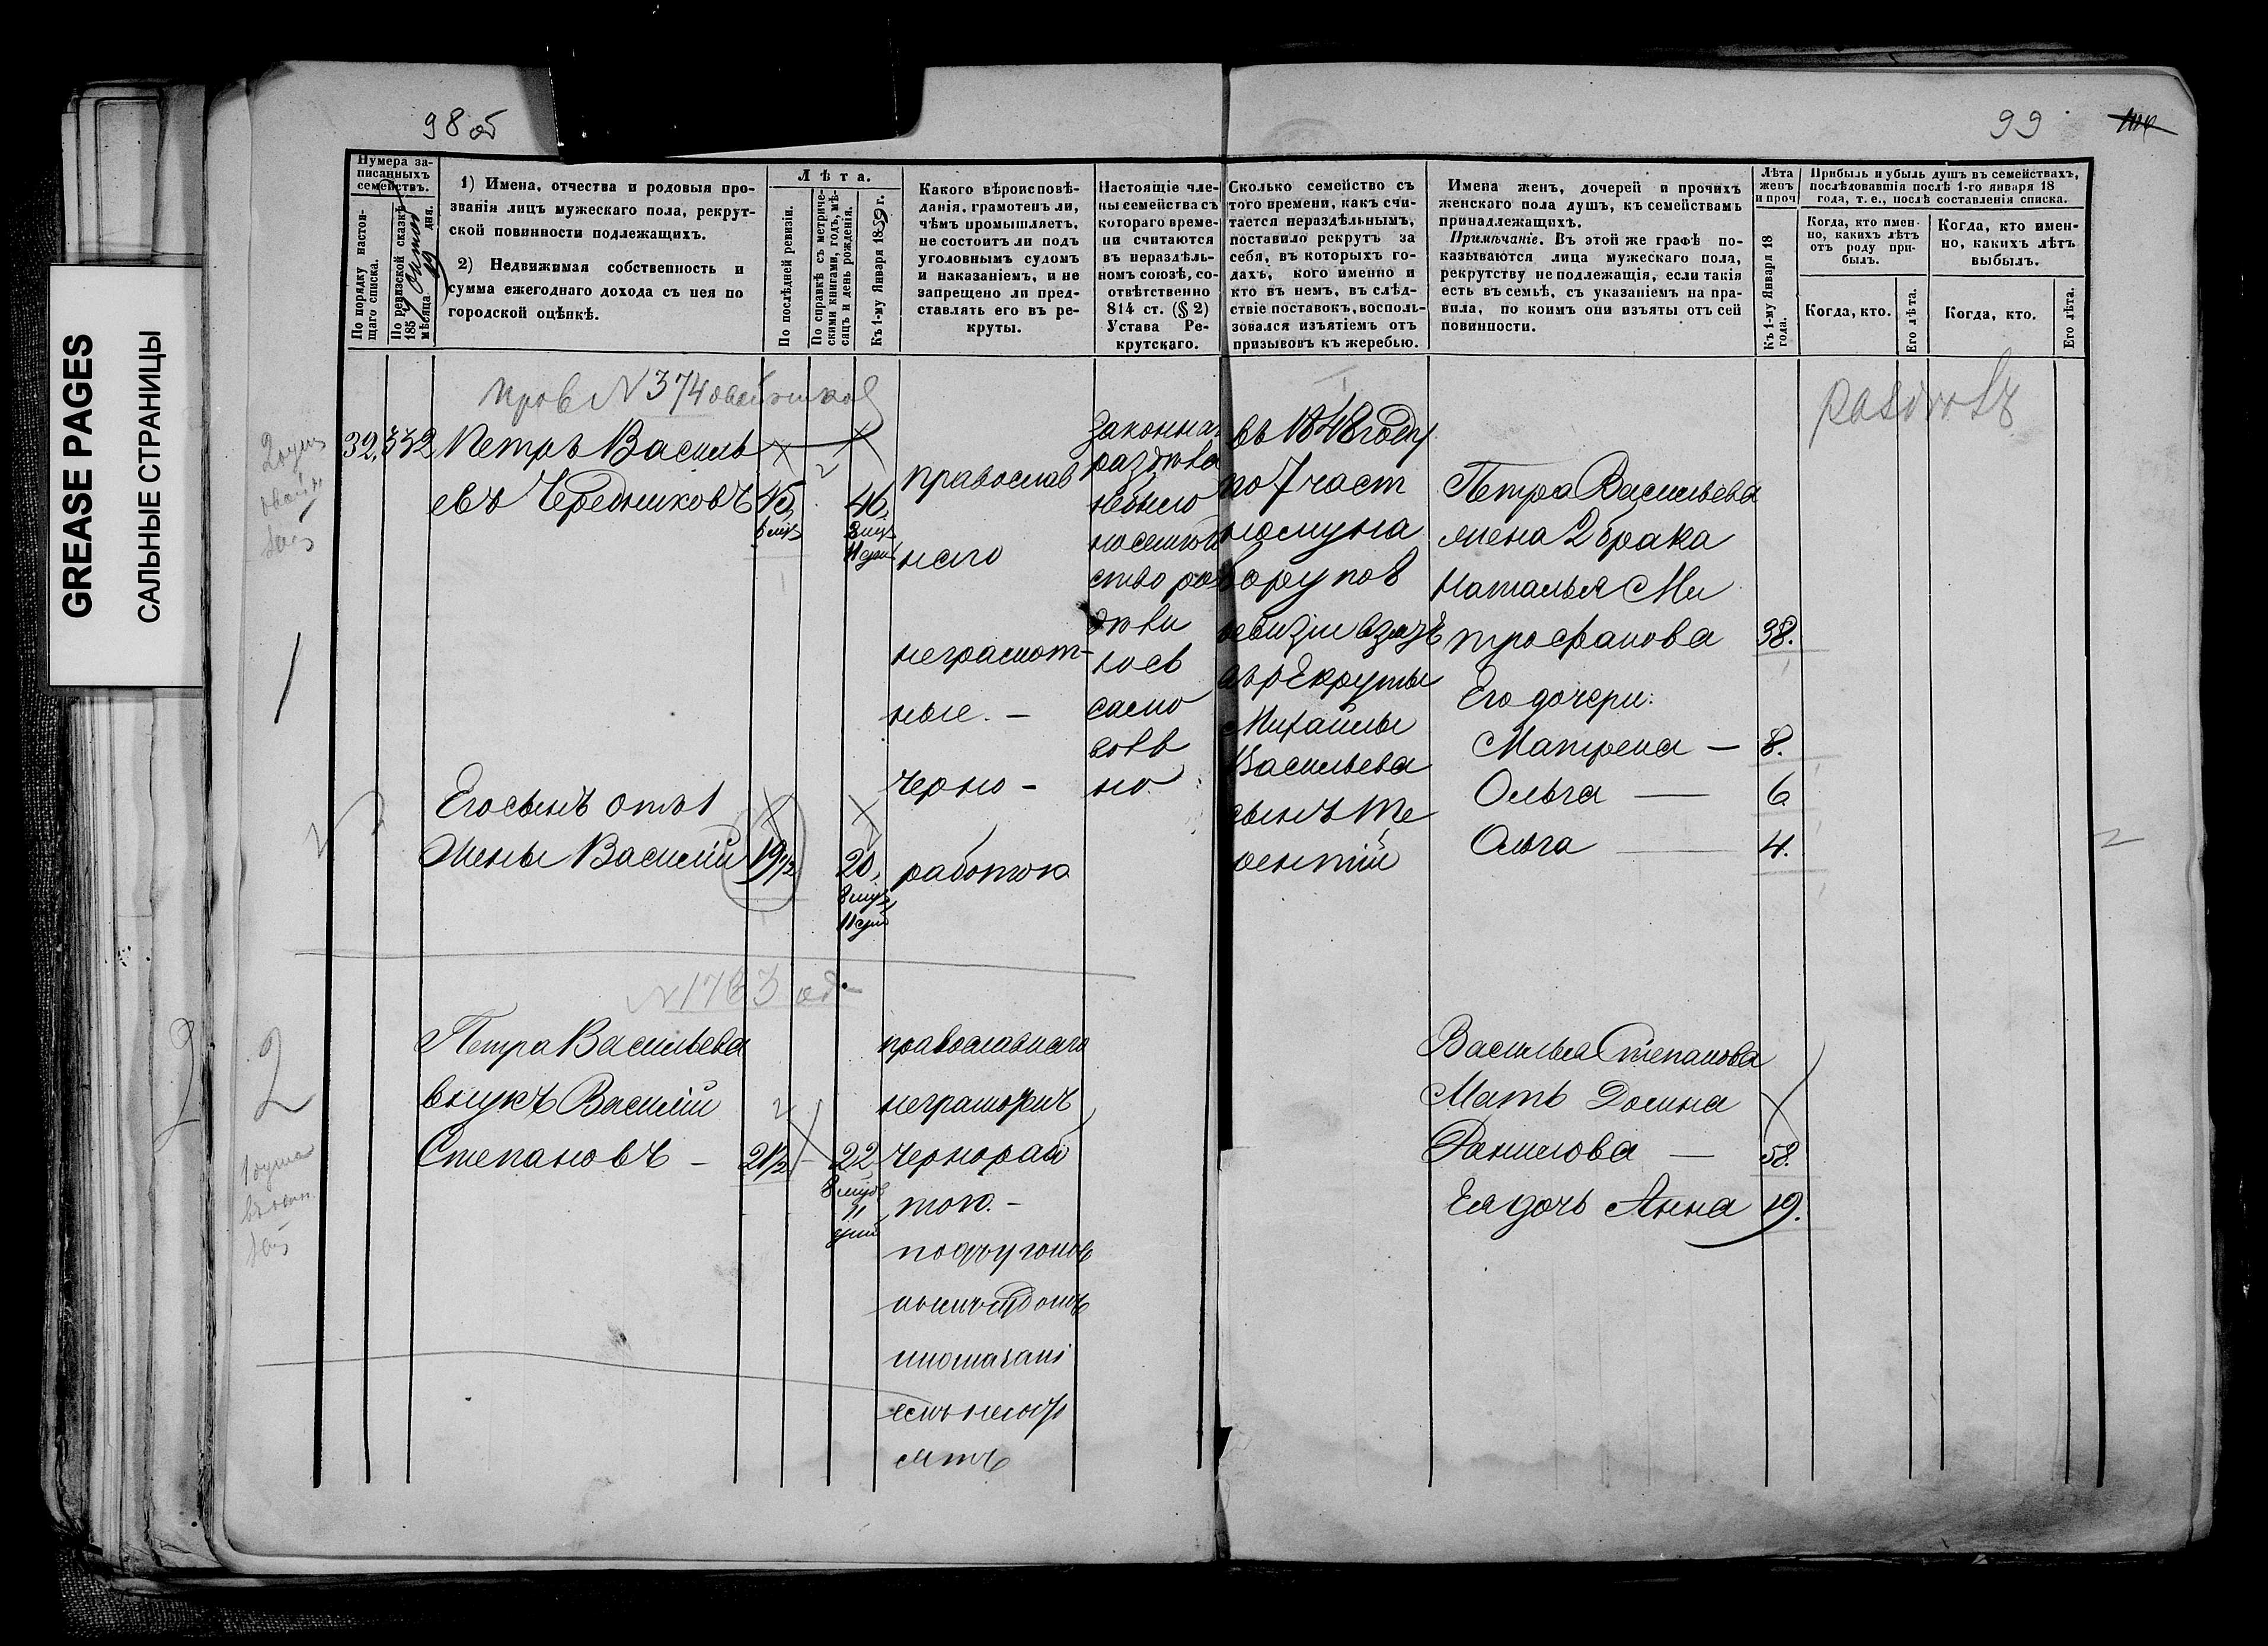 GREASE PAGES
САЛЬНЫЕ СТРАНИЦЫ
98 об
99
Нумера за-
писанныхъ
семействъ.
По порядку настоя-
щаго списка.
По ревизской сказкѣ
1857 октяб
мѣсяца 19 дня.
1) Имена, отчества и родовыя про-
званія лицъ мужескаго пола, рекрут-
ской повинности подлежащихъ.
2) Недвижимая собственность и
сумма ежегоднаго дохода съ нея по
городской оцѣнкѣ.
Лѣта.
По послѣдней ревизіи.
По справкѣ съ метриче-
скими книгами, годъ, мѣ-
сяцъ и день рожденія.
Къ 1-му Января 1859 г.
Какого вѣроисповѣ-
данія, грамотенъ ли,
чѣмъ промышляетъ,
не состоитъ ли подъ
уголовнымъ судомъ
и наказаніемъ, и не
запрещено ли пред-
ставлять его въ ре-
круты.
Настоящіе чле-
ны семейства съ
котораго време-
ни считаются
въ нераздѣль-
номъ союзѣ, со-
отвѣтственно
814 ст. (§ 2)
Устава Ре-
крутскаго.
Сколько семейство съ
того времени, какъ счи-
тается нераздѣльнымъ,
поставило рекрутъ за
себя, въ которыхъ го-
дахъ, кого именно и
кто въ немъ, въ слѣд-
ствіе поставокъ, восполь-
зовался изъятіемъ отъ
призывовъ къ жеребью.
Имена женъ, дочерей и прочихъ
женскаго пола душъ, къ семействамъ
принадлежащихъ.
Примѣчаніе. Въ этой же графѣ по-
казываются лица мужескаго пола,
рекрутству не подлежащія, если такія
есть въ семьѣ, съ указаніемъ на пра-
вила, по коимъ они изъяты отъ сей
повинности.
Лѣта
женъ
и проч
Къ 1-му Января 18
года.
Прибыль и убыль душъ въ семействахъ,
послѣдовавшія послѣ 1-го января 18
года, т. е., послѣ составленія списка.
Когда, кто имен-
но, какихъ лѣтъ
отъ роду при-
былъ.
Когда, кто имен-
но, какихъ лѣтъ
выбылъ.
Когда, кто.
Его лѣта.
Когда, кто.
Его лѣта.
N 374
32. 332. Петръ Василь
евъ Чередниковъ 45. 46.
8 мцв
11 дней
православ
наго
неграмот-
ные. –
черно –
работою
Законнаго
раздѣла
небыло
но семей
ство раз
дѣли
лось
само
воль
но.
въ 1848 году
по 7 част
ному на
бору по 8
ревизіи взятъ
въ рекруты
Михайлы
Васильева
сынъ Те
рентій
Петра Васильева
жена 2 брака
Наталья Ми
трофанова 38.
Его дочери:
Матрена – 8.
Ольга — 6
Ольга — 4.
1
Его сынъ отъ 1
Жены Василій 19 1/2 20,
8 мцв
11 дней
N 1763
2
Петра Васильева
внукъ Василій
Степановъ – 21 1/2 22
8 мцов
11
дней
православнаго
неграмотенъ
чернорабо
тою. –
подъ уголов
нымъ судомъ
Василья Степанова
Мать Домна
Данилова — 58.
Ея дочь Анна 19.